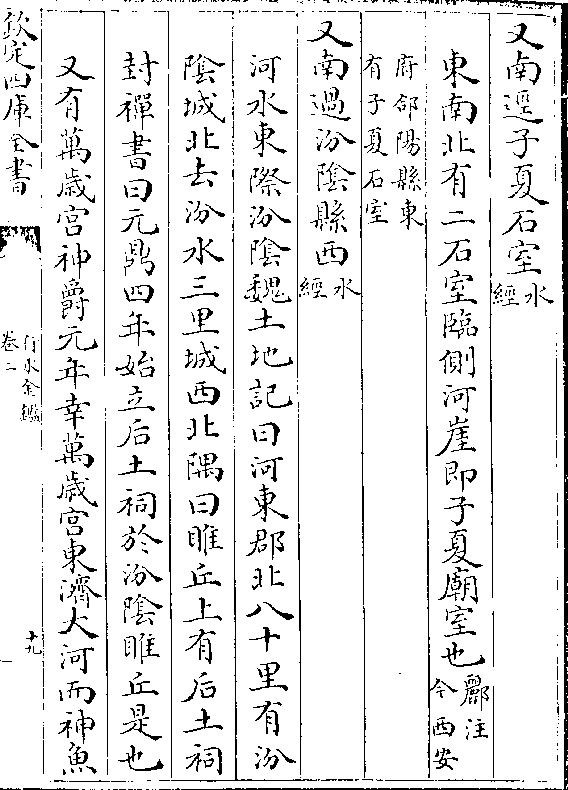 又南逕子夏石室水經
東南北有二石室臨側河崖即子夏廟室也酈注今西安
府郃陽縣東有子夏石室
又南過汾陰縣西水經
河水東際汾陰魏土地記曰河東郡北八十里有汾
陰城北去汾水三里城西北隅曰脽丘上有后土祠
封禪書曰元鼎四年始立后土祠於汾陰脽丘是也
又有萬歲宮神爵元年幸萬歲宮東濟大河而神魚
欽定四庫全書
行水金鑑
卷二
十九